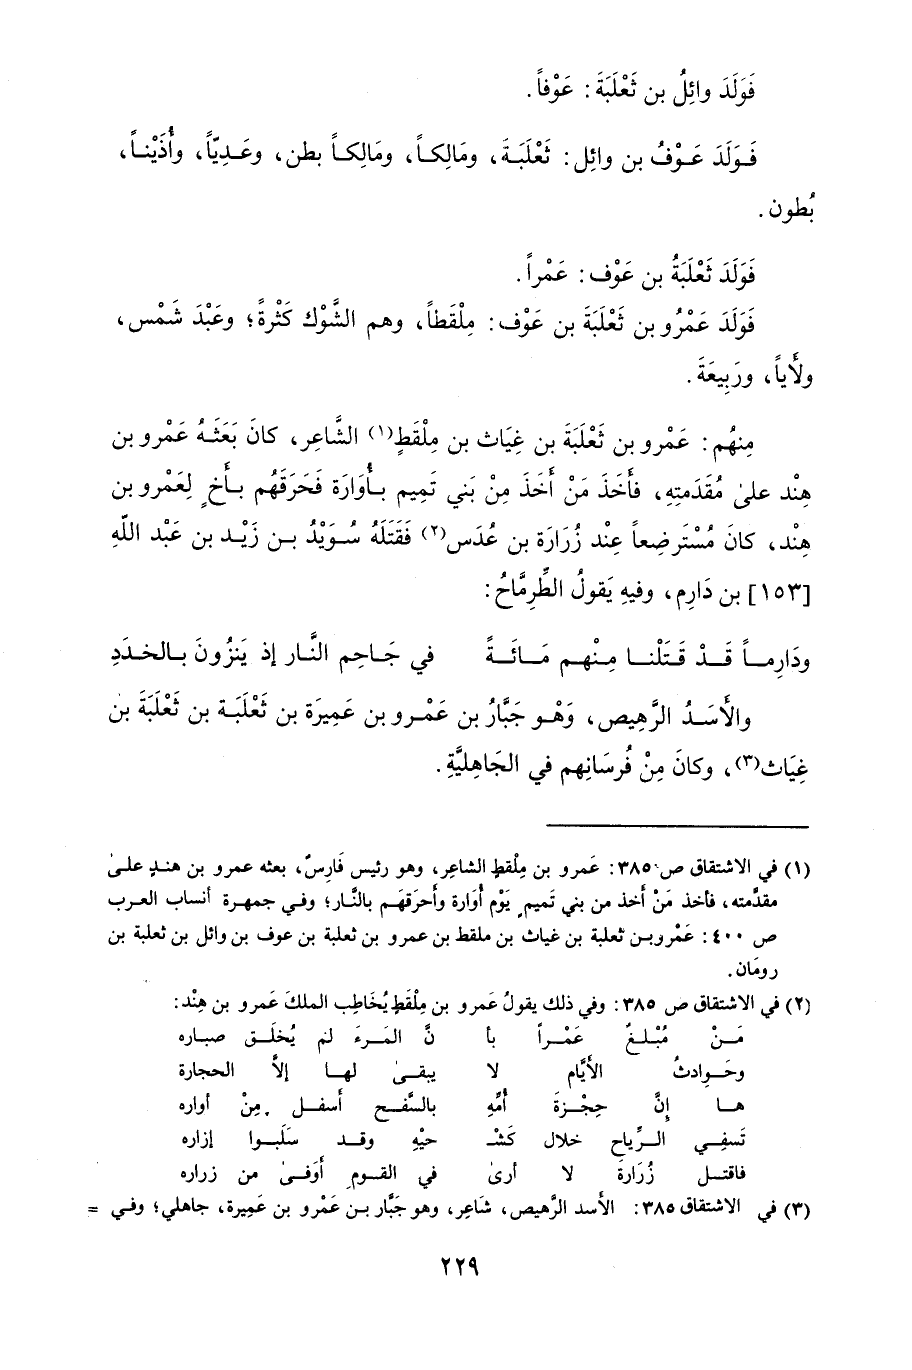 فَوَلَدَ وائِلُ بن ثَعْلَبَةَ : عَوْفاً .
فَوَلَدَ عَوْفُ بن وائِل : ثَعْلَبَةَ، ومَالِكاً، ومَالِكاً بطن، وعَدِيّاً، وأُذَيْناً،
بُطون .
فَوَلَدَ ثَعْلَبَةُ بن عَوْف : عَمْراً .
فَوَلَدَ عَمْرُو بن ثَعْلَبَةَ بن عَوْف : مِلْقَطاً، وهم الشَّوْك كَثْرةً؛ وعَبْدَ شَمْس،
ولَأياً، ورَبِيعَةَ .
مِنهُم : عَمْرو بن ثَعْلَبَةَ بن غِيَاث بن مِلْقَطٍ(١) الشَّاعِر، كانَ بَعَثَهُ عَمْرو بن
هِنْد على مُقَدمَتِهِ، فأَخَذَ مَنْ أَخَذَ مِنْ بَني تَمِيم بأُوَارَة فَحَرَقَهُم بأَخٍ لِعَمْرو بن
هِنْد، كانَ مُسْتَرضِعاً عِنْد زُرَارَة بن عُدَس(٢) فَقَتَلَهُ سُوَيْدُ بن زَيْد بن عَبْد اللّهِ
[١٥٣] بن دَارِم، وفيهِ يَقولُ الطِّرِمَّاحُ :
ودَارِماً قَدْ قَتَلْنا مِنْهم مَائَةً في جَاحِم النَّار إذ يَنزُونَ بالخدَدِ
والأَسَدُ الرَّهيص، وَهْو جَبَّارُ بن عَمْرو بن عَمِيرَة بن ثَعْلَبَة بن ثَعْلَبَةَ بن
غِيَاث(٣)، وكانَ مِنْ فُرسَانِهم في الجَاهِليَّةِ .
(١) في الاشتقاق ص ٣٨٥ : عَمرو بن مِلْقط الشاعِر، وهو رئيس فَارِسٌ، بعثه عمرو بن هندٍ على
مقدَّمته، فأخذ مَنْ أخذ من بني تميم ٍ يَوْم أوارة وأحرقهَم بالنَّار؛ وفي جمهرة أنساب العرب
ص ٤٠٠ : عَمْرو بن ثعلبة بن غياث بن ملقط بن عمرو بن ثعلبة بن عوف بن وائل بن ثعلبة بن
رومَان .
(٢) في الاشتقاق ص ٣٨٥ : وفي ذلك يقولُ عَمرو بن مِلْقَطٍ يُخَاطِب الملكَ عَمرو بن هِنْد :
مَنْ مُبْلغُ عَمْراً بأ نَّ المَرءَ لم يُخلَق صباره
وحَوادثُ الأَيَّام لا يبقى لها إلاَّ الحجارة
ها إنَّ عِجْزةَ أُمِّهِ بالسَّفح أسفل مِنْ أواره
تَسفِي الرِّياح خلال كَشْـ حيْهِ وقد سَلَبوا إزاره
فاقتل زُرَارةَ لا أرى في القومِ أَوفى من زراره
(٣) في الاشتقاق ص ٣٨٥ : الأسد الرَّهيص، شَاعِر، وهو جَبَّار بن عَمْرو بن عَمِيرة، جاهلي؛ وفي =
٢٢٩